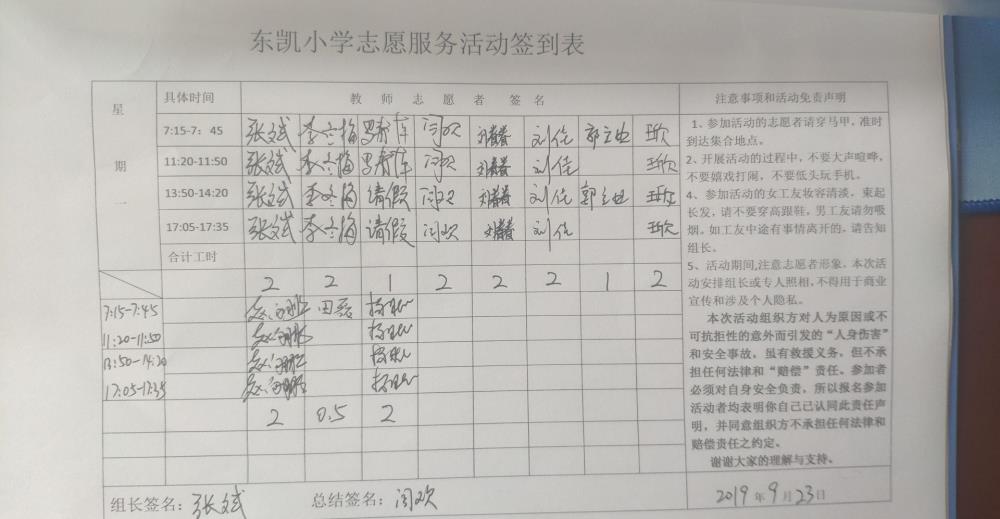 东凯小学志愿服务活动签到表
星期一 具体时间 教师志愿者签名 注意事项和活动免责声明
7:15-7：45 张斌 李冬梅 闫欢 刘春春 刘佳 郭 王欣
11:20-11:50 张斌 李冬梅 闫欢 刘春春 刘佳 王欣
13:50-14:20 张斌 李冬梅 请假 闫欢 刘春春 刘佳 郭 王欣
17:05-17:35 张斌 李冬梅 请假 闫欢 刘春春 刘佳 王欣
合计工时
2 2 1 2 2 2 1 2
7:15-7:45 田磊
11:20-11:50
13:50-14:20
17:05-17:35
2 0.5 2
1、参加活动的志愿者请穿马甲，准时
到达集合地点。
2、开展活动的过程中，不要大声喧哗，
不要嬉戏打闹，不要低头玩手机。
4、参加活动的女工友妆容清淡，束起
长发，请不要穿高跟鞋，男工友请勿吸
烟。如工友中途有事情离开的，请告知
组长。
5、活动期间,注意志愿者形象。本次活
动安排组长或专人照相,不得用于商业
宣传和涉及个人隐私。
本次活动组织方对人为原因或不
可抗拒性的意外而引发的“人身伤害”
和安全事故，虽有救援义务，但不承
担任何法律和“赔偿”责任。参加者
必须对自身安全负责，所以报名参加
活动者均表明你自己已认同此责任声
明，并同意组织方不承担任何法律和
赔偿责任之约定。
谢谢大家的理解与支持。
组长签名：张斌 总结签名：闫欢 2019年9月23日